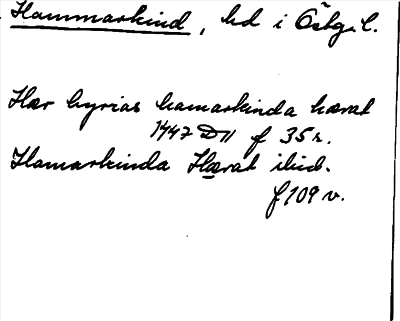 Hammarkind, hd i Östg. l.
Hær byrias hamarkinda hærat
1447 D11 f 35 r.
Hamarkinda Hærat ibid.
f 109 v.